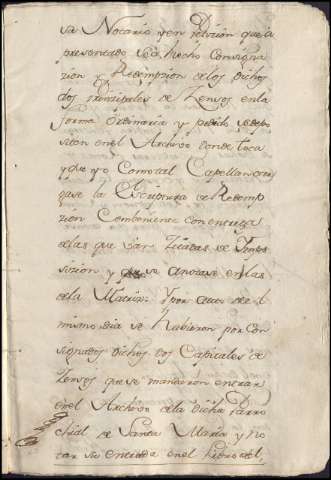 su Notario y en petision que a
presentado se a hecho Consigna
zion y Redempsion de los dichos
dos prinsipales de Zensos en la
forma Ordinaria y pedido se depo
siten en el Archivo donde toca
y que yo Como tal Capellan otor
gase la Escriptura de Redemp
zion Combeniente con entrega
de las que van Zitadas de Ympo
sizion y que se anotase en las
de la Matris. Y por auto de el
mismo dia se Hubieron por con
signados dichos dos Capitales de
Zensos que se mandaron entrar
en el Archivo de la dicha Parro
chial de Santa Maria y No
tar su entrada en el Libro de el,